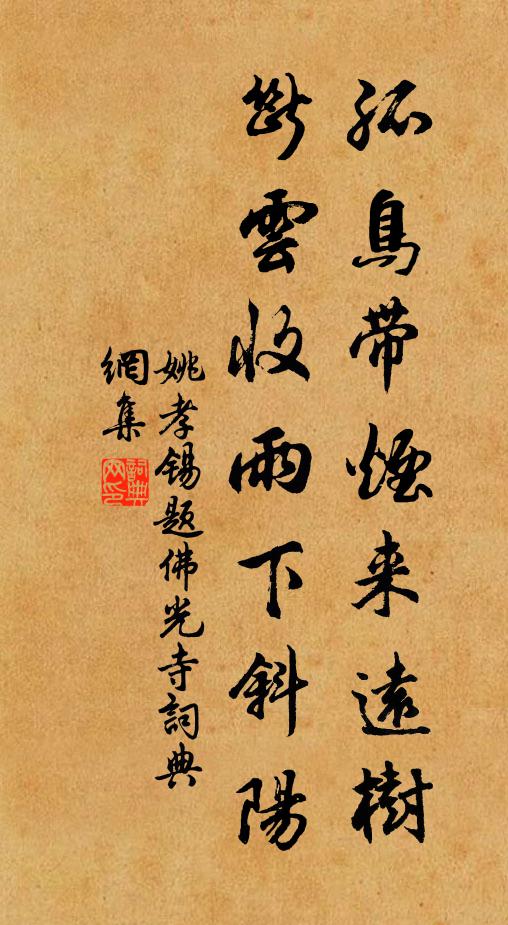 孤鳥帶煙来遠樹
斷雲收雨下斜陽
姚孝錫題佛光寺詞典
網集
詞典網印